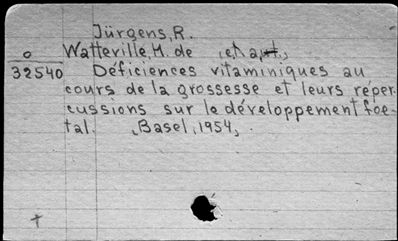 Jürgens, R.
o Watteville, M. de , et a
32540 Déficiences vitaminiques au
cours de la grossesse et leurs réper-
cussions sur le développement foe-
tal. , Basel, 1954,